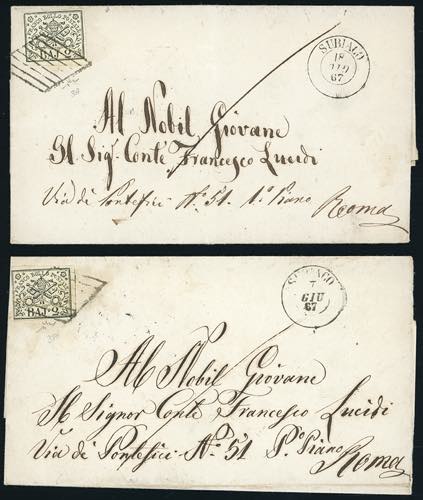 FRANCO BOLLO POSTALE
BAJ 2
SUBIACO
18
67
Al Nobil Giovane
Il Sig.r Conte Francesco Lucidi
Via di Pontefici N.o 51. 1.o Piano
Roma
BOLLO
BAJ. 2
SUBIACO
7
GIU
67
Al Nobil Giovane
Il Signor Conte Francesco Lucidi
Via di Pontefici N.o 51 P.o Piano
Roma